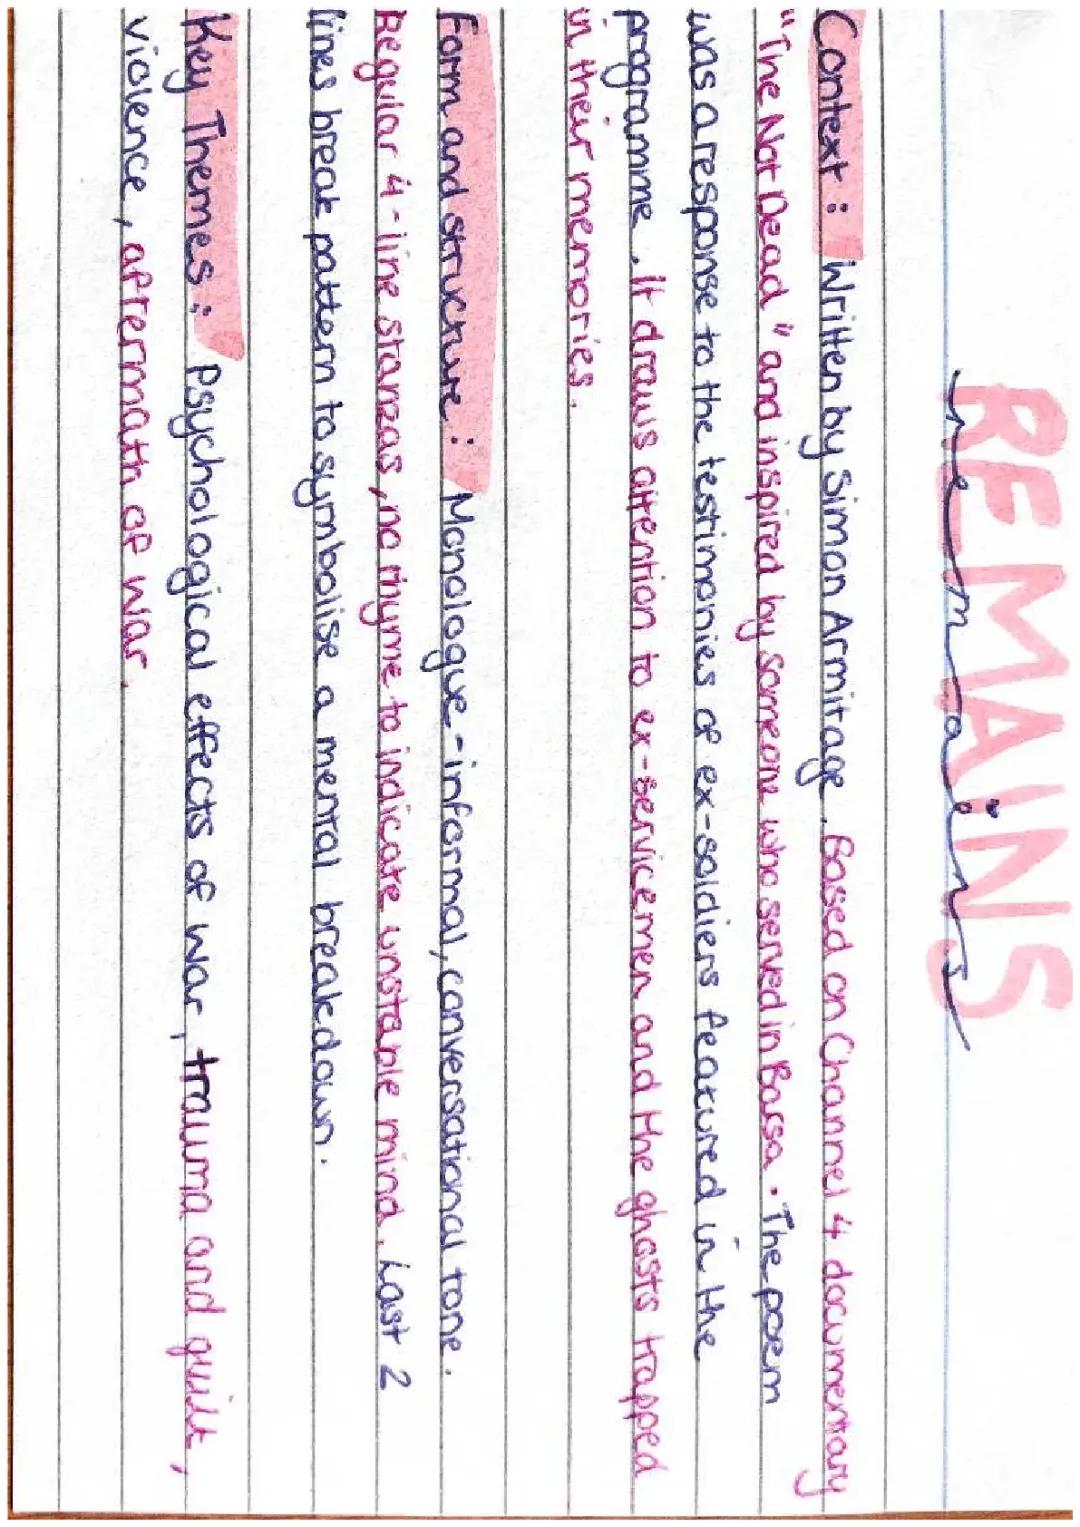 REMAINS
remains
Context: Written by Simon Armitage. Based on Channel 4 documentary
"The Not Dead" and inspired by someone who served in Barsa. The poem
was a response to the testimonies of ex-soldiers featured in the
programme. It draws attention to ex-servicemen and the ghosts trapped
in their memories.
Form and structure: Monologue-informal, conversational tone.
Regular 4-line stanzas, no rhyme to indicate unstable mind. Last 2
lines break pattern to symbolise a mental breakdown.
Key Themes: Psychological effects of war, trauma and guilt,
violence, aftermath of war.